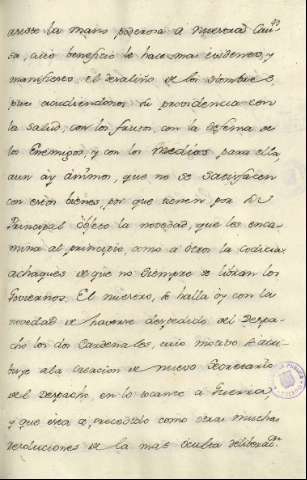 la mano poderosa a nuestras Cau
sa, cuio beneficio le hace mas evidente, y
manifiesto, el de los hombres,
pues acudiendonos su providencia con
la salud, con los frutos, con la defensa de
los Enemigos, y con los Medios para ella,
aun ay animos, que no se satisfacen
con estos bienes, por que tienen por su
Principal objeto la novedad, que les enca
mina al principio, como a otros la codicia,
achaques de que no siempre se libran los
Goviernos. El nuestro, se halla oy con la
novedad de haverse despedido del Despa
cho los dos Cardenales, cuio motivo se atri
buye a la creacion de nuevo Secretario
del Despacho, en lo tocante a Guerra,
y que esta a procedido como otras muchas
resoluciones de la mas oculta deliberaon.